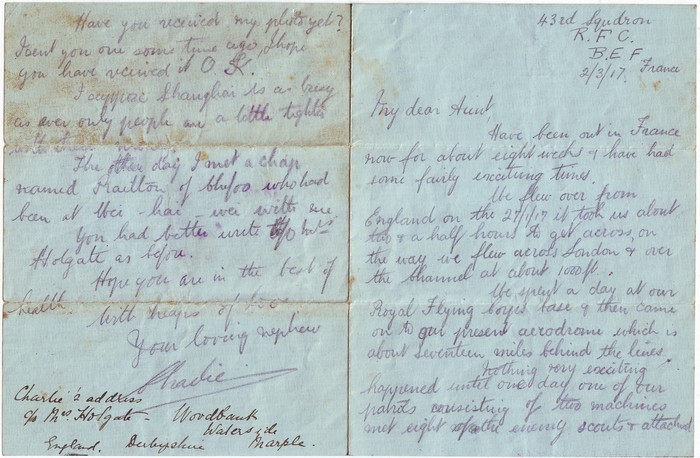 43rd Squdron
R.F.C.
B.E.F
2/3/17. France
My dear Aunt
Have been out in France
now for about eight weeks & have had
some fairly exciting times.
We flew over from
England on the 27/1/17 it took us about
two & a half hours to get across, on
the way we flew across London & over
the Channel at about 1000ft.
We spent a day at our
Royal Flying Corps base & then came
on to our present aerodrome which is
about seventeen miles behind the lines.
Nothing very exciting
happened until one day one of our
patrols consisting of two machines
met eight of the enemy scouts & attacked
Have you received my photo yet?
I sent you one some time ago, I hope
you have received it O.K.
I suppose Shanghai is as busy
as ever only people are a little tighter
with their
The other day I met a chap
named Railton of Chefoo who had
been at Wei-hai-wei with me.
You had better write c/o Mrs
Holgate as before.
Hope you are in the best of
health.
With heaps of love
Your loving nephew
Charlie
Charlie's address
c/o Mrs Holgate - Woodbank
Waterside
England. Derbyshire Marple.